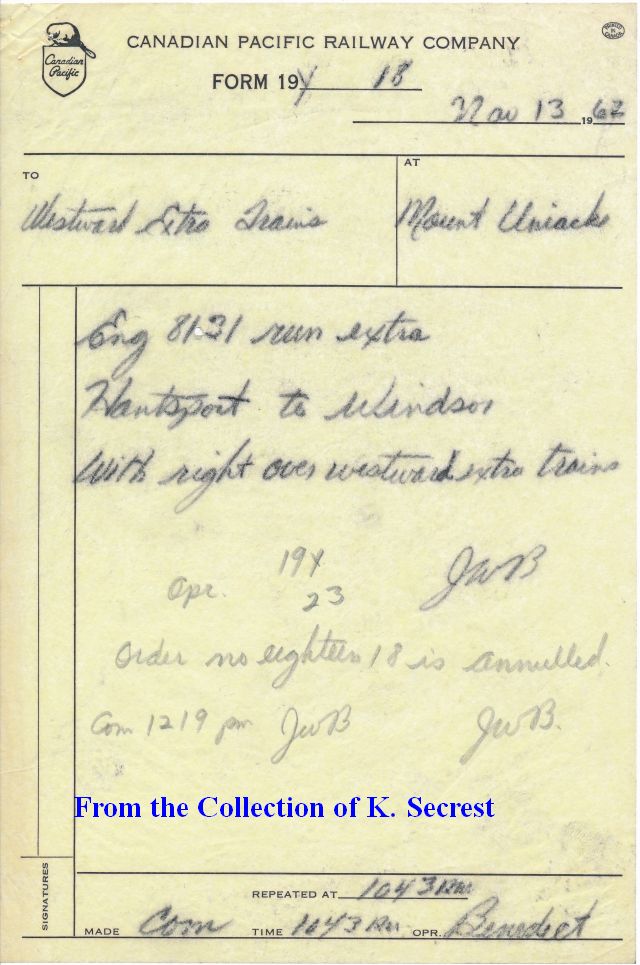 Canadian
Pacific
CANADIAN PACIFIC RAILWAY COMPANY
PRINTED IN CANADA
FORM 19Y 18
Nov 13 1962
TO
Westward Extra Trains
AT
Mount Uniacke
Eng 8131 run extra
Hantsport to Windsor
With right over westward extra trains
JWB
Opr. 19Y
23
Order no eighteen 18 is annulled.
Com 1219 pm JWB JWB.
From the Collection of K. Secrest
SIGNATURES
REPEATED AT 1043
MADE Com TIME 1043 OPR. Benedict